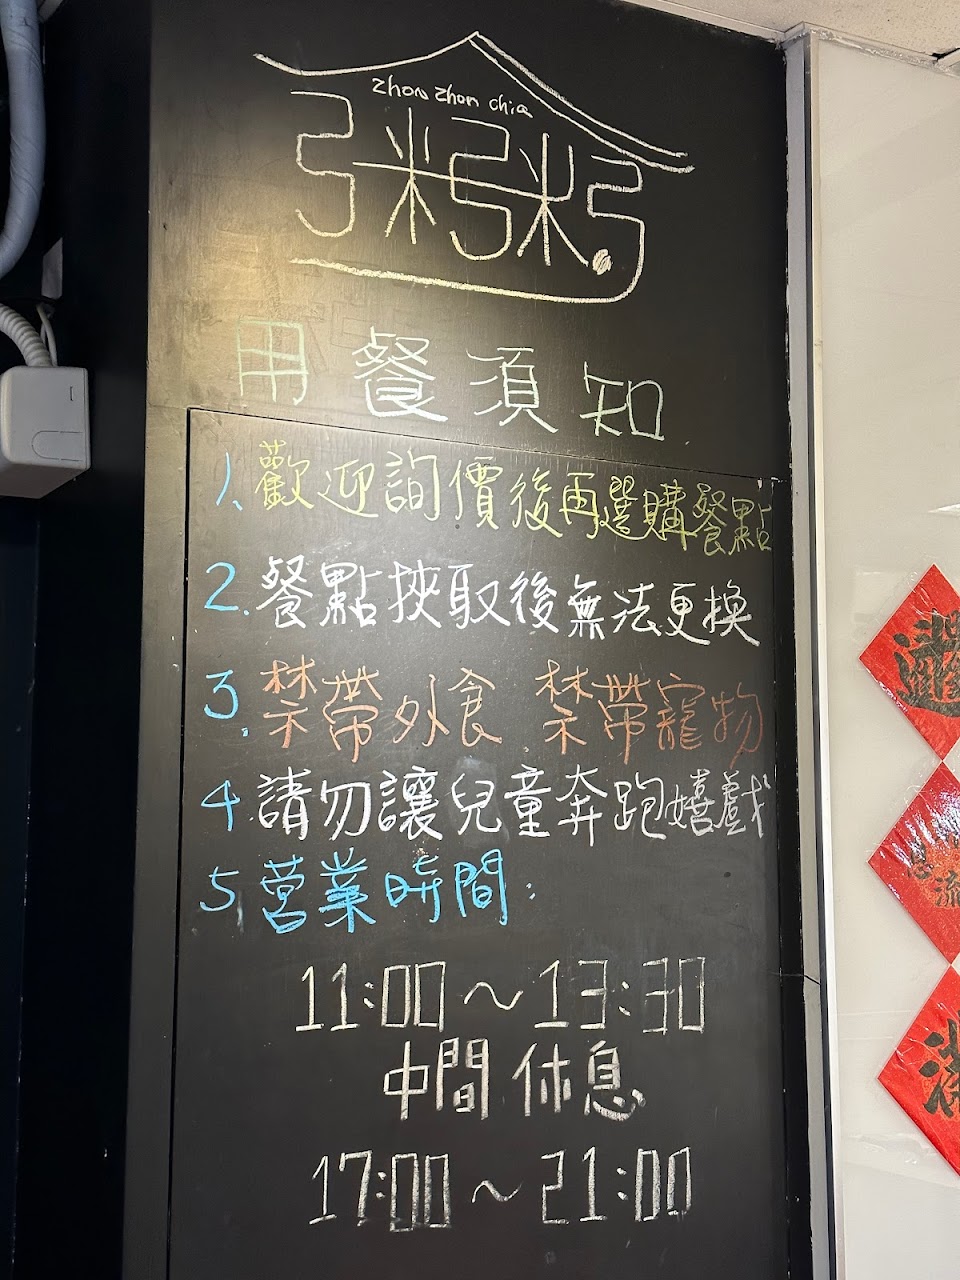 zhou zhou chia
粥粥
用餐須知
1. 歡迎詢價後再選購餐點
2. 餐點挾取後無法更換
3. 禁帶外食 禁帶寵物
4. 請勿讓兒童奔跑嬉戲
5. 営業時間:
11:00~13:30
中間休息
17:00~21:00